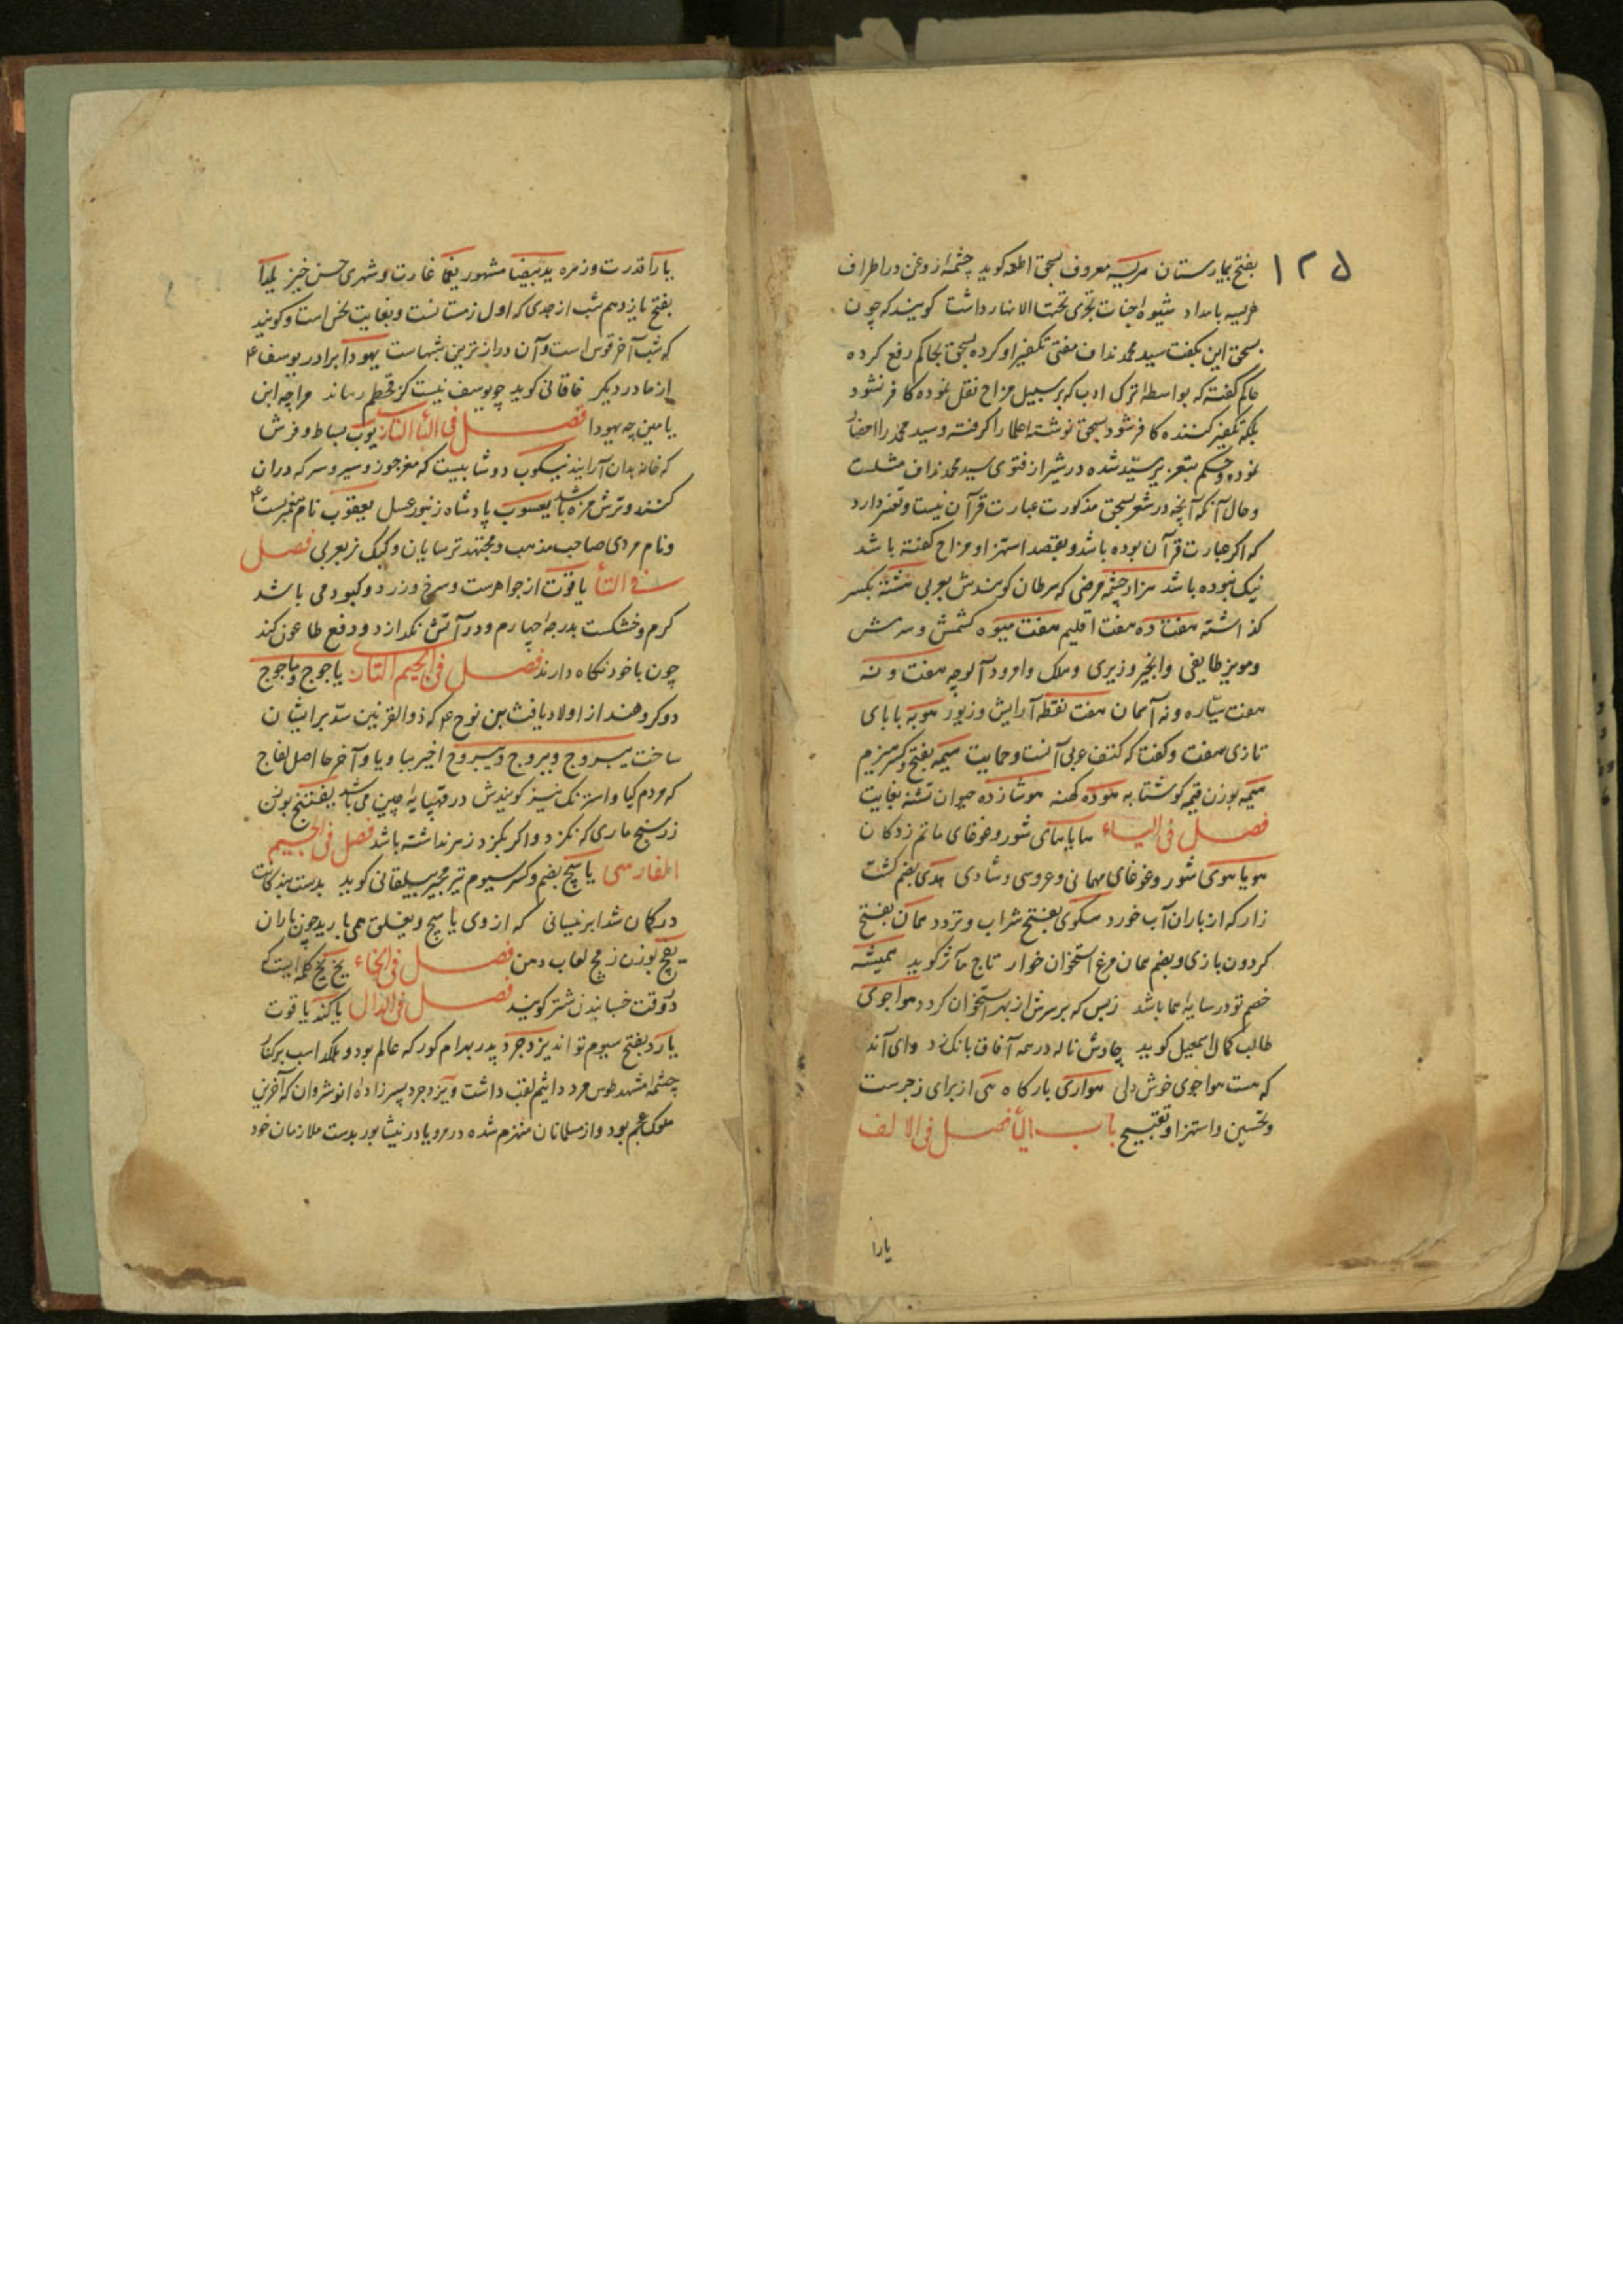 ۱۲۵
بفتح بیمارستان هریسه معروف بسحق اطعمه کوید چشمه از روغن در اطراف
هریسه بامداد شیوه جنات تجری تحتها الانهار داشت کویند که چون
بسحق این بکفت سید محمد نداف مفتی تکفیر او کرده بسحق بحاکم رفع کرده
حاکم کفته که بواسطه ترک ادب که بر سبیل مزاح نقل نموده کافر نشود
بلکه تکفیر کننده کافر شود بسحق نوشته علما را کرفته و سید محمد را احضار
نموده و حکم بتعزیر سید شده در شیراز فتوی سید محمد نداف مثلست
و حال آنکه آنچه در شعر بسحق مذکورست عبارت قرآن نیست و تغیر دارد
که اکر عبارت قرآن بوده باشد و بقصد استهزا و مزاح کفته باشد
نیک نبوده باشد هزار چشمه مرضی که سرطان کویندش بعربی هشته بکسر
کذاشته هفت ده هفت اقلیم هفت میوه کشمش و
و مویز طایفی و انجیر وزیری و و امرود آلوچه هفت و نه
هفت سیاره و نه آسمان هفت نقطه آرایش و زیور هوبه با بای
تازی کفت و کفتا که کتف عربی آنست و حمایت هیمه بفتح و کسر هیزم
هیمه بوزن قیمه کوشتابه هوده کهنه هوشازده حیوان تشنه بغایت
فصل فی الیاء هایاهای شور و غوغای ماتم زدکان
هویاهوی شور و غوغای مهمانی و عروسی و شادی هدی بضم کشت
زار که از باران آب خورد هکوی بفتح شراب و تردد همان بفتح
کردون بازی و بضم همان مرغ استخوان خوار تاج مآثر کوید همیشه
خصم تو در سایه هما باشد ز بس که بر سرش از بهر استخوان کردد هواجوی
طالب کمال اسمعیل کوید چاوش ناله در همه آفاق بانک زد وای آنه
که هست هواجوی خوش دلی هواری بارکاه هی از برای زجرست
و تحسین و استهزا و تقبیح باب الیأ فصل فی الالف
یارا
یارا قدرت و زهره ید بیضا مشهور یغما غارت و شهری حسن خیز یلدا
بفتح یازدهم شب از جدی که اول زمستانست و بغایت نحس است و کویند
که شب آخر قوس است و آن درازترین شبهاست یهودا برادر یوسف ع
از مادر دیکر خاقانی کوید چو یوسف نیست کز قحطم رهاند مرا چه ابن
یامین چه یهودا فصل فی البأ التازی یوب بساط و فرش
که خانه بدان آرایند نیکوب دوشابیست که مغز جوز و سیر و سرکه در آن
کنند و ترش مزه باشد یعسوب پادشاه زنبور عسل یعقوب نام پیغمبریست ع
و نام مردی صاحب مذهب و مجتهد ترسایان و کبک نر بعربی فصل
فی التأ یاقوت از جواهرست و سرخ و زرد و کبود می باشد
کرم و خشکست بدرجه چهارم و در آتش نکدازد و دفع طاعون کند
چون با خود نکاه دارند فصل فی الجیم التازی یاجوج و ماجوج
دو کروهند از اولاد یافث بن نوح ع که ذوالقرنین سد بر ایشان
ساخت یبروج و بیروج و یبروح اخیر ببا و یا و آخر حا اصل لفاح
که مردم کیا و استرنک نیز کویندش در چین می باشد یفتنج بوزن
زرسنج ماری که نکزد و اکر بکزد زهر نداشته باشد فصل فی الجیم
الفارسی یاسیج بضم و کسر سیوم تیر مجیر بیلقانی کوید بدست بندکانت
در کمان شد ابر نیسانی که از وی یاسیج و بیلق همی بارید چون باران
یخچ بوزن زمچ لعاب دهن فصل فی الخاء یخ یخ کلمه ایست که
در وقت خسبانیدن شتر کویند فصل فی الدال یاکند یاقوت
یارد بفتح سیوم تواند یزدجرد پدر بهرام کور که عالم بود و بلکد اسب بر کنار
چشمه مشهد طوس مرد و اثیم لقب داشت و یزدجرد پسرزاده انوشروان که آخرین
ملوک عجم بود و از مسلمانان منهزم شده در مرو یا در نیشابور بدست ملازمان خود